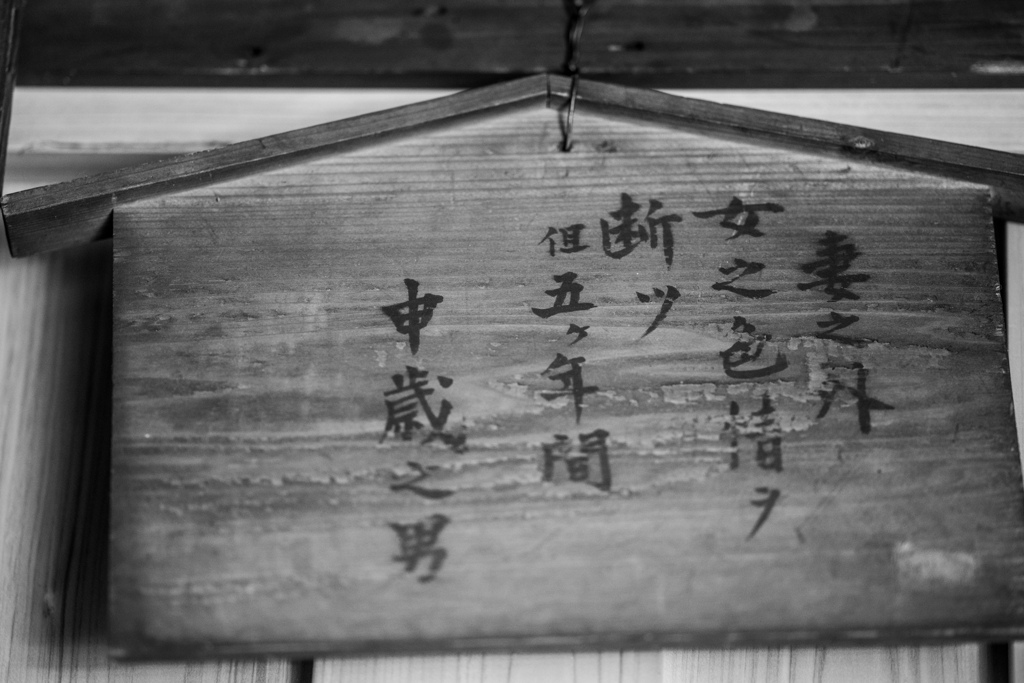 妻之外
女之色情ヲ
断ツ
但五ヶ年間
申歳之男